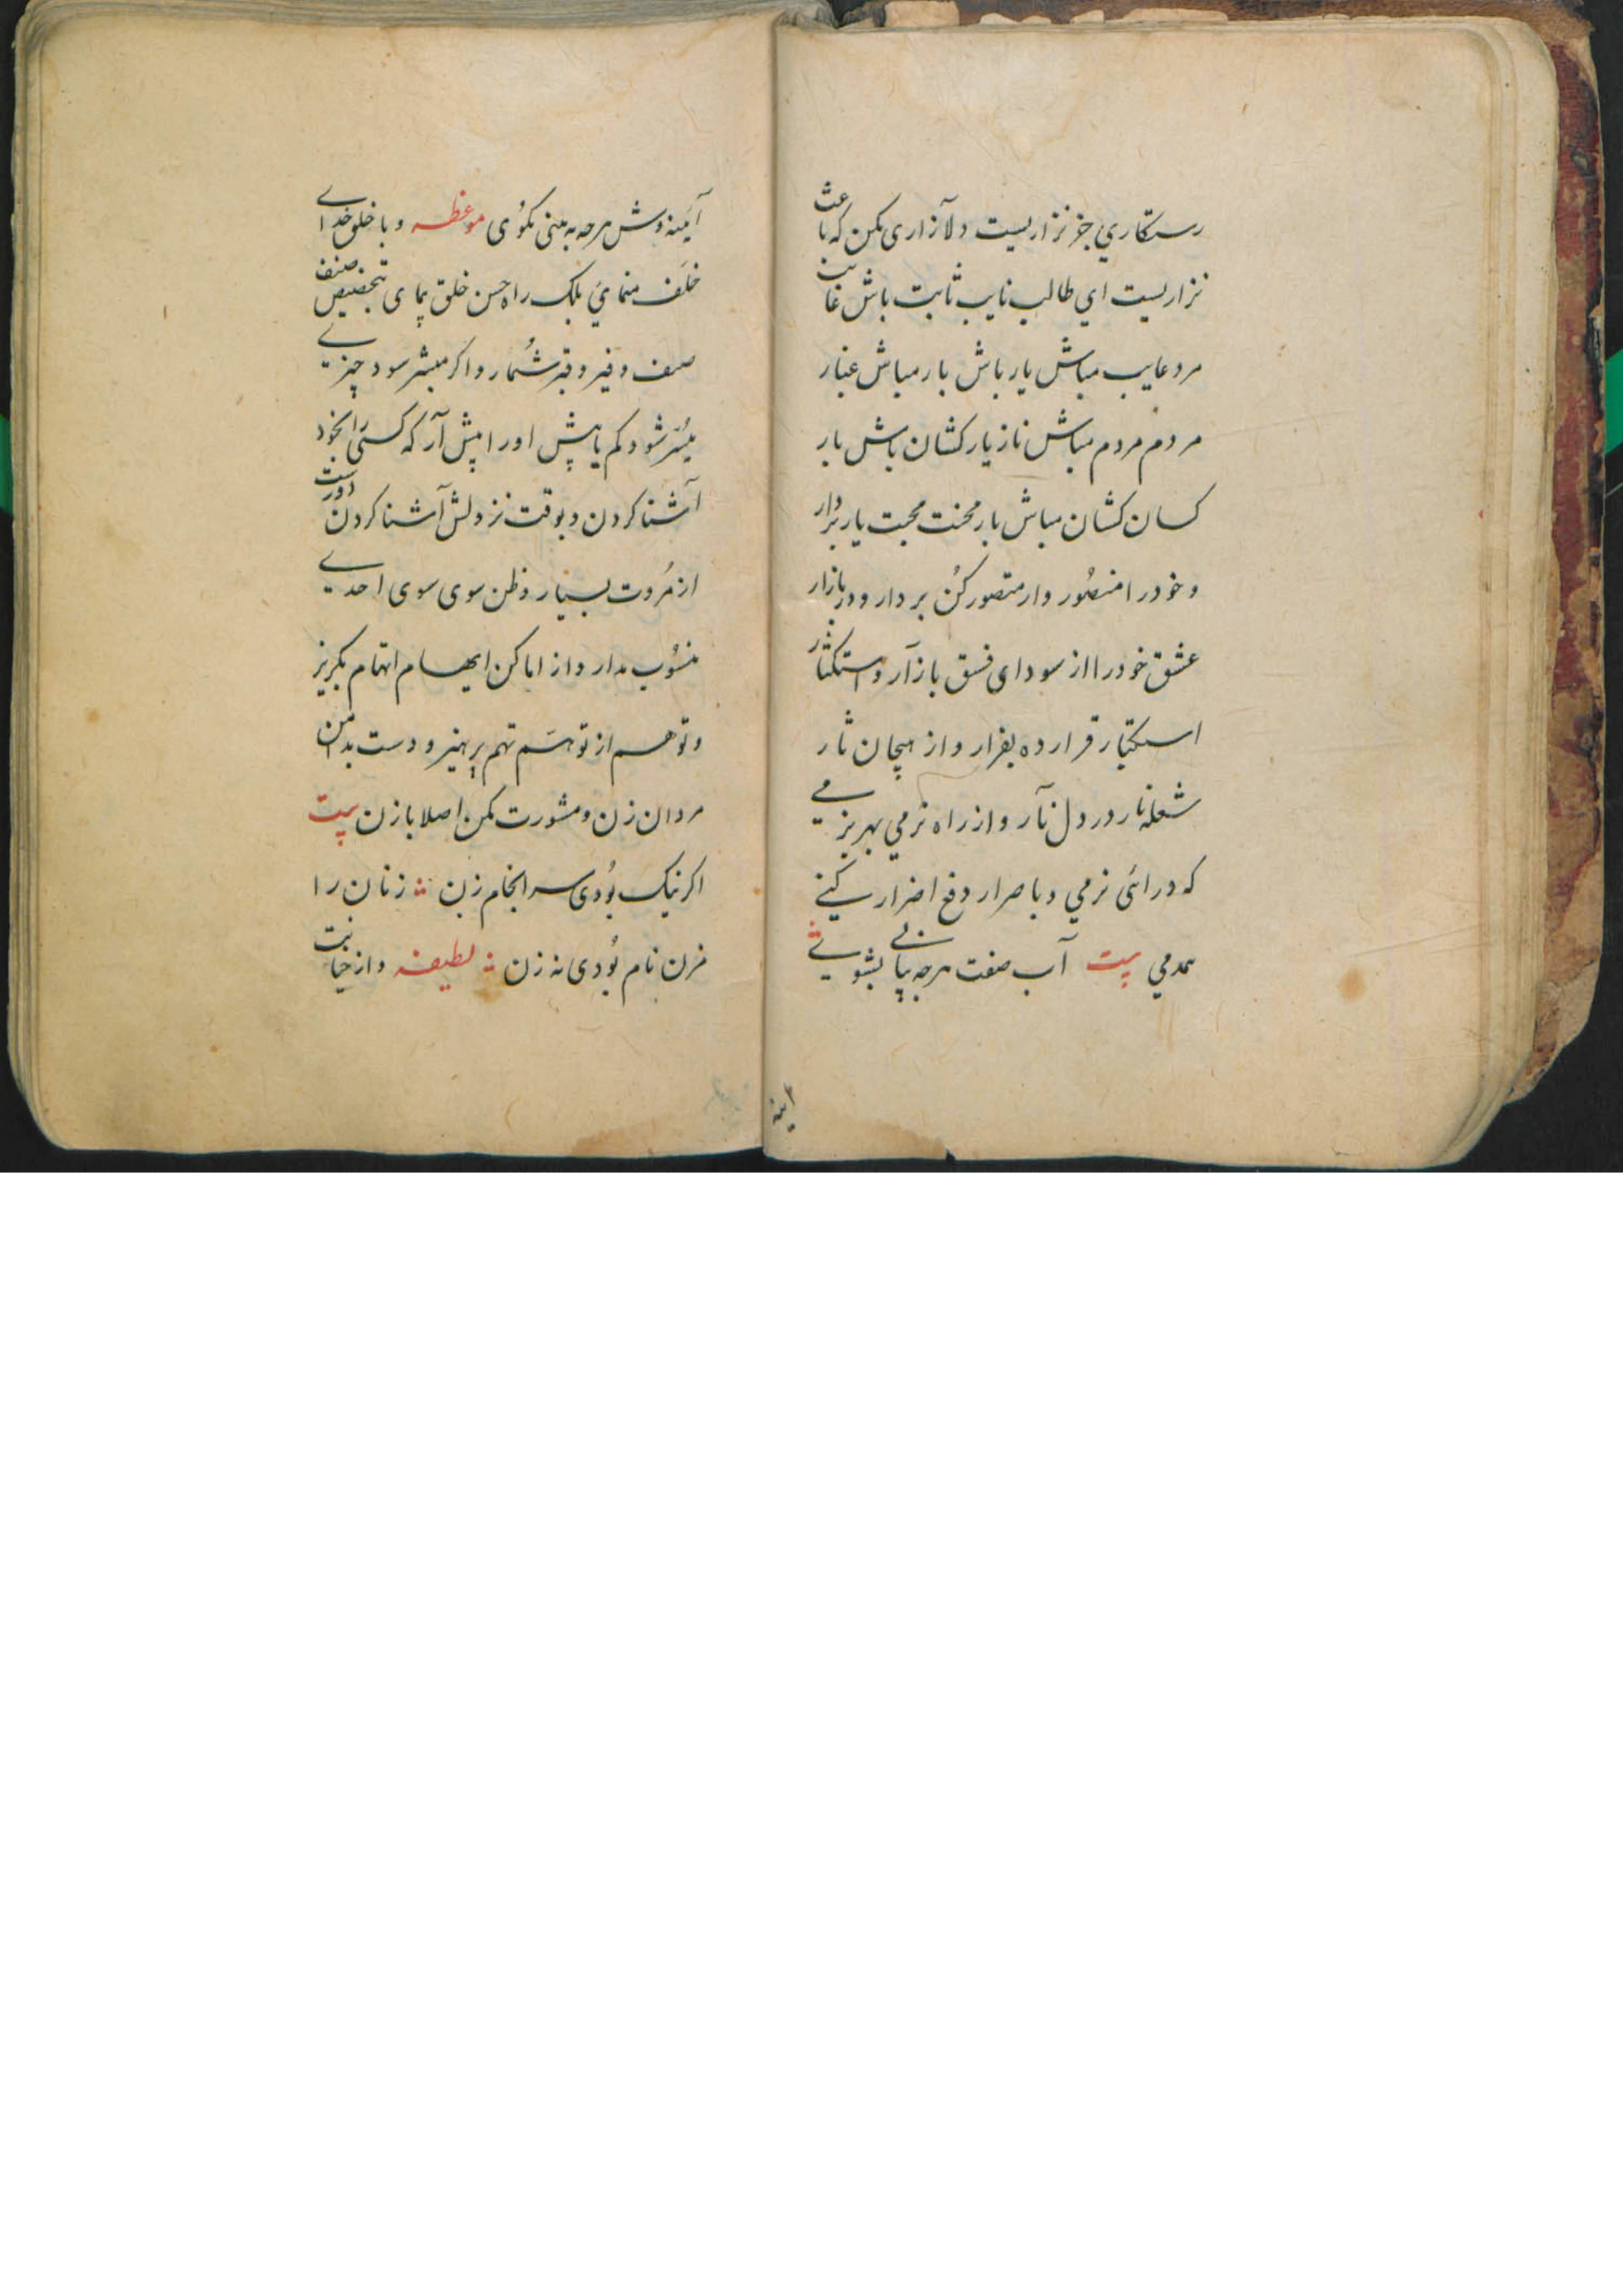 رستکاری جز نزاریست دلآزاری مکن که باعث
نزاریست ای طالب نایب ثابت باش غایب
مرد عایب مباش یار باش بار مباش غبار
مردم مردم مباش ناز یار کشان باش بار
کسان کشان مباش بار محنت محبت یار بردار
و خود را منصور وار متصور کن بر دار و در بازار
عشق خود را از سودای فسق باز آر و استکثار
استکبار قرار ده بفرار و از هیجان ثار
شعله نار در دل نآر و از راه نرمی بهر بزمی
که درائی نرمی و باصرار دفع اضرار کنی
همدمی بیت آب صفت هرچه بیابی بشوی
آینه
آینه وش هرچه به بینی بکوی موعظه و با خلق خدای
خلف منمای بلک راه حسن خلق پیمای تخصیص صنف
صف و فیر و قبر شمار و اکر مبشر سود چیزی
میسر شود کم یا بیش او را پیش آر که کسی را بخود
آشنا کردن و بوقت نزولش آشنا کردن دورست
از مروت بسیار و ظن سوی سوی احدی
منسوب مدار و از اماکن ایهام اتهام بکریز
و توهم از توهم تهم بپرهیز و دست بدامن
مردان زن و مشورت مکن اصلا با زن بیت
اکر نیک بودی سرانجام زن زنان را
مزن نام بودی نه زن لطیفه و از خیانت